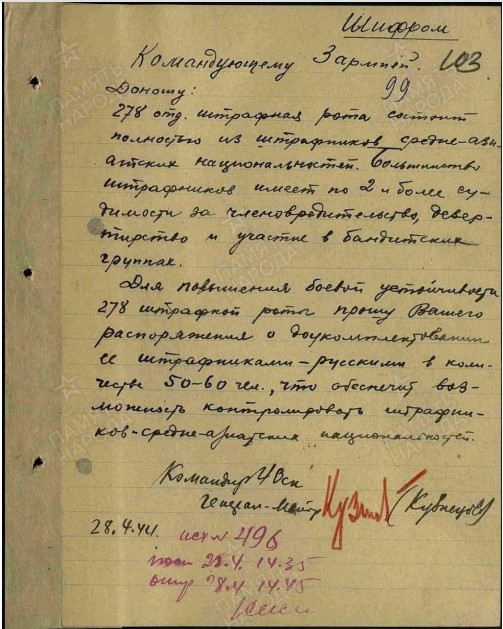 Шифром
Командующему 3 армией. 103
Доношу: 99
278 отд. штрафная рота состоит
полностью из штрафников средне-ази-
атских национальностей. Большинство
штрафников имеет по 2 и более су-
димости за членовредительство, дезер-
тирство и участие в бандитских
группах.
Для повышения боевой устойчивости
278 штрафной роты прошу Вашего
распоряжения о доукомплектовании
ее штрафниками-русскими в коли-
честве 50-60 чел., что обеспечит воз-
можность контролировать штрафни-
ков-средне-азиатских национальностей.
Командир 40ск
генерал-майор (Кузнецов)
28.4.44. исх № 496
28.4. 14.35
28.4 14.45
ПАМЯТЬ НАРОДА